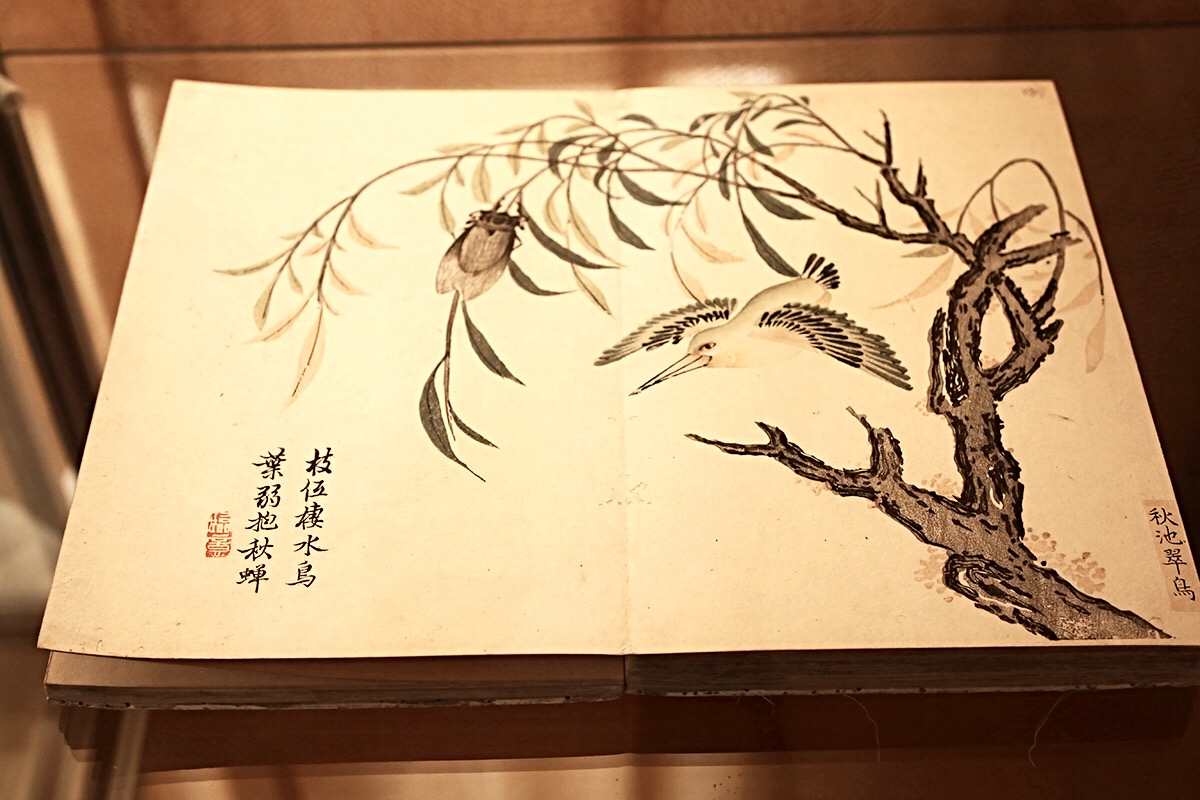 秋池翠鳥
枝低棲水鳥
葉弱抱秋蟬